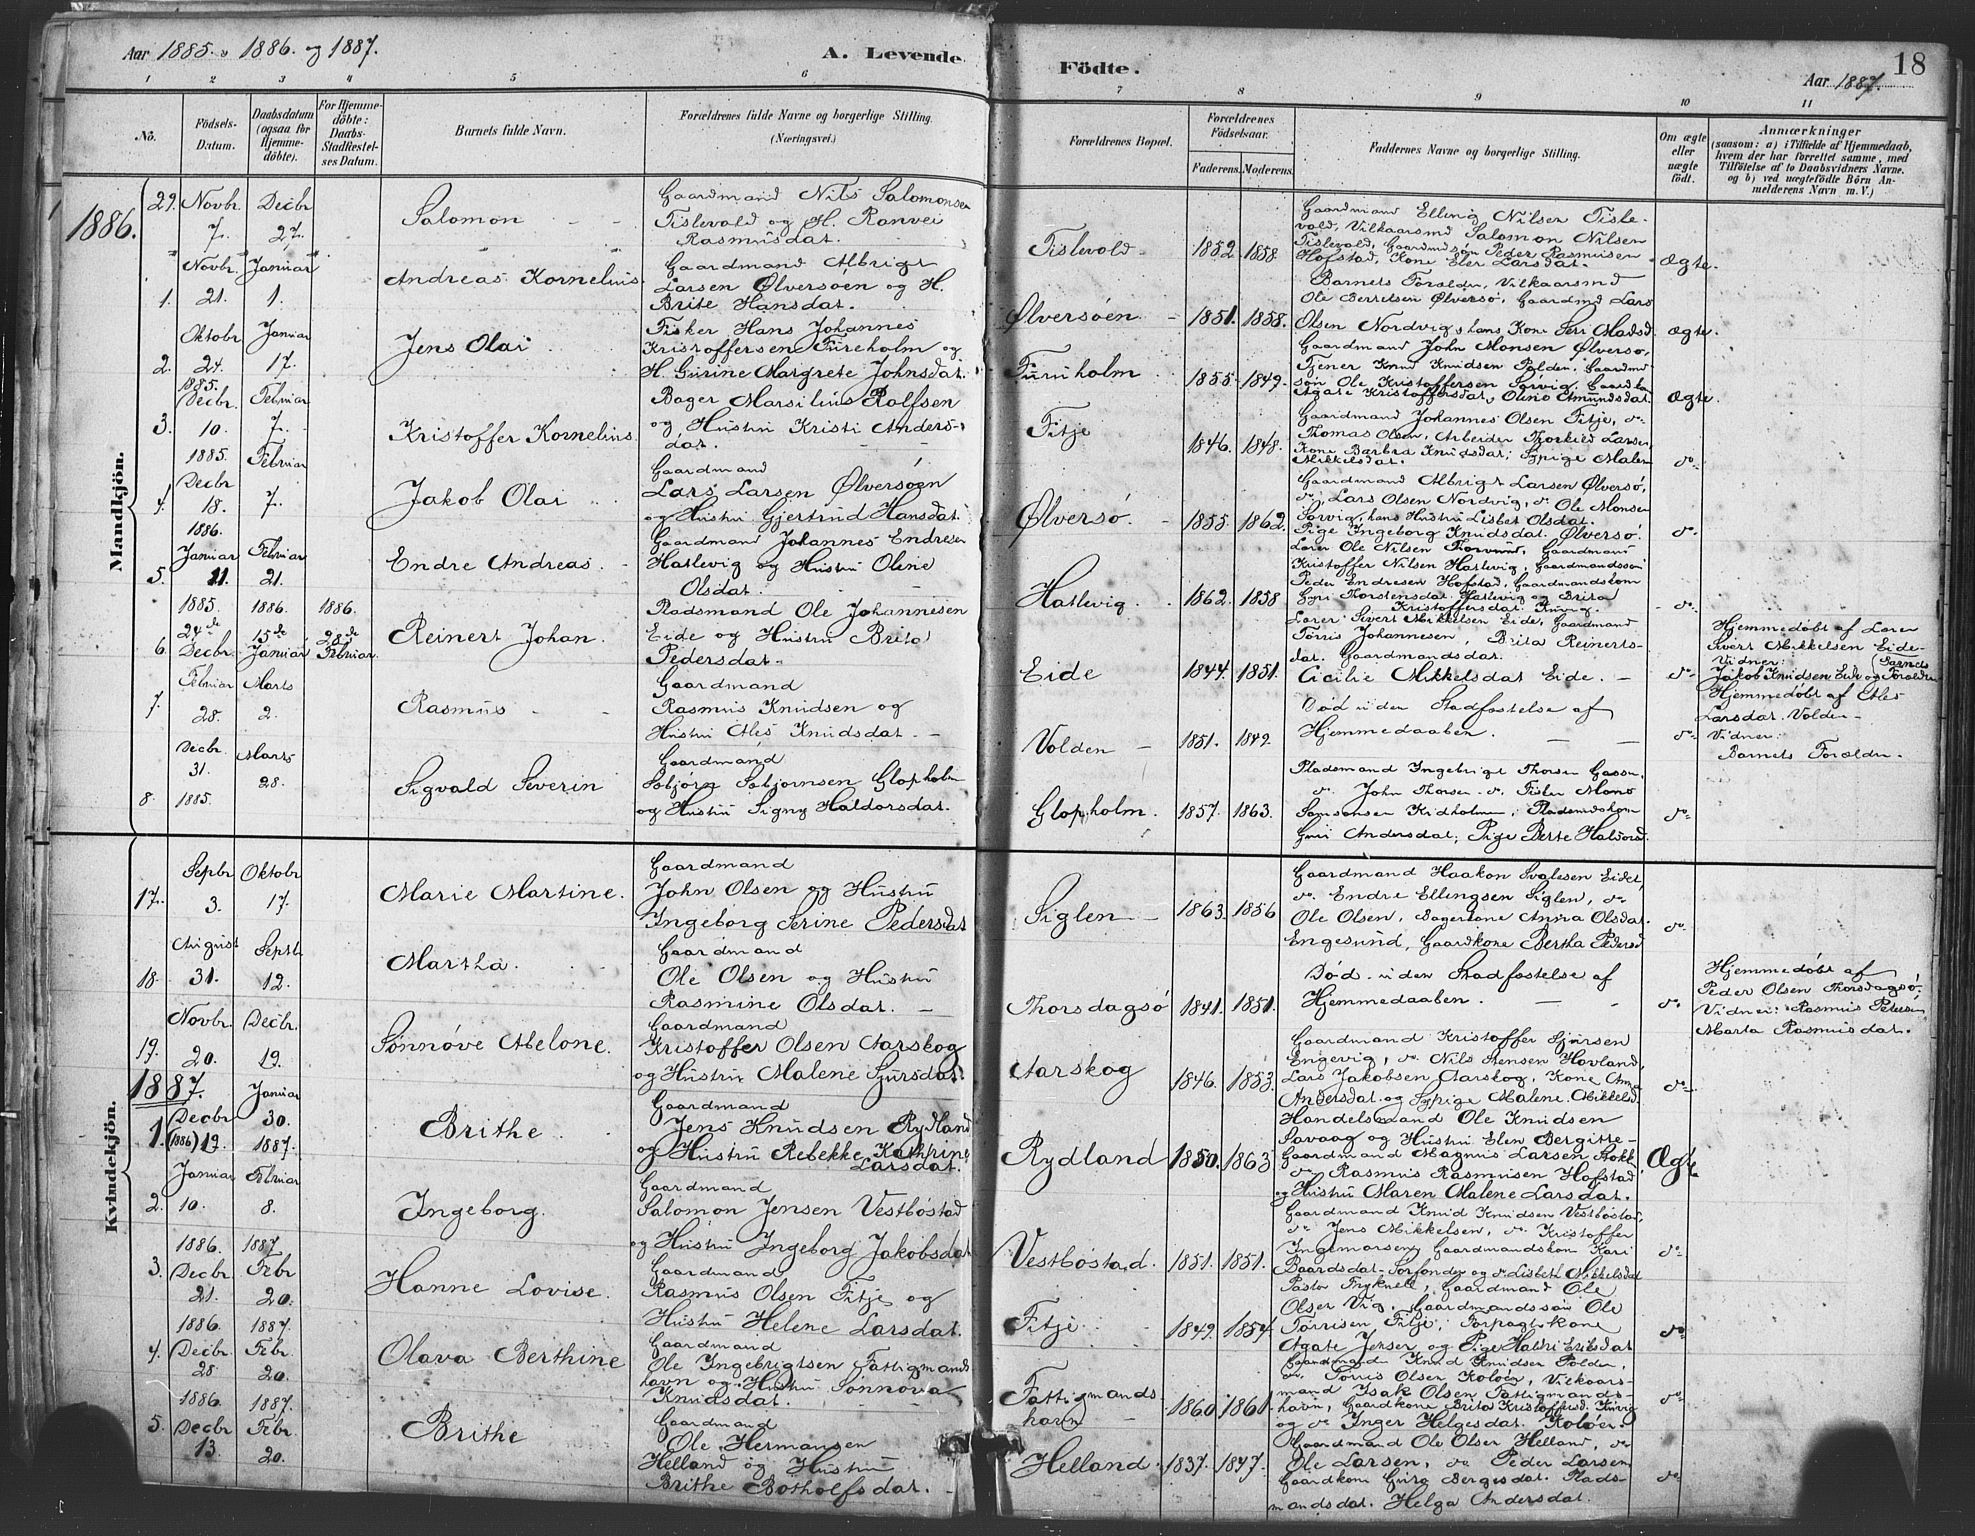 Aar 1885. o 1886. og 1887.
A. Levende Födte.
Aar 1887.
18
1 2 3 4 5 6 7 8 9 10 11
No.
Födsels-Datum.
Daabsdatum (ogsaa for Hjemmedöbte).
For Hjemmedöbte: Daabs-Stadfæstelses Datum.
Barnets fulde Navn.
Forældrenes fulde Navne og borgerlige Stilling.
(Næringsvei.)
Forældrenes Bopæl.
Forældrenes Födselsaar.
Faderens. Moderens.
Faddernes Navne og borgerlige Stilling.
Om ægte eller uægte födt.
Anmærkninger
(saasom: a) i Tilfælde af Hjemmedaab, hvem der har forrettet samme, med Tilföielse af to Daabsvidners Navne. og b) ved uægtefödte Börn Anmelderens Navn m. V.)
Mandkjön.
1886.
29. Novbr. 7. Decbr 27.
Salomon
Gaardmand Nils Salomonsen
Tislevold og H. Ranvei
Rasmusdat.
Tislevold 1852 1858
Gaardmand Elling Nilsen Tisle-
vold, Vilkaarsmd Salomon Nilsen
Tislevold, Gaardmdsøn Peder Rasmusen
Hofstad, Kone Eler Larsdat.
Ægte.
1. Novbr. 21. Januar 1.
Andreas Kornelius
Gaardmand Albrigt
Larsen Ølversøen og H.
Brite Hansdat.
Ølversøen 1851. 1858.
Barnets Forældre, Vilkaarsmd
Ole Berretsen Ølversø, Gaardmd Lars
Olsen Nordvig, hans Kone Serr Madsd.
ægte.
2. Oktobr 24. Januar 17.
Jens Olai
Fisker Hans Johannes
Kristoffersen Fureholm og
H. Gurine Margrete Johnsdat.
Furuholm 1855 1849
Gaardmand John Monsen Ølversø,
Tjener Knud Knudsen Polden, Gaardmd
søn Ole Kristoffersen Sørvig, Gaardko
Agate Kristoffersdat, Oline Amundsdat
Ægte.
3. 1885. Decbr. 10. Februar 7.
Kristoffer Kornelius
Bager Marsilius Rolfsen
og Hustru Kristi Anders-
dat.
Fitje 1846. 1848.
Gaardmand Johannes Olsen Fitje, do
Thomas Olsen, Arbeider Thorkild Larsen,
Kone Barbra Knudsdat, Sypige Malen
Mikkelsdat.
do
4. 1885. Decbr 18. Februar 7.
Jakob Olai
Gaardmand
Lars Larsen Ølversøen
og Hustru Gjertrud Hansdat.
Ølversø. 1855 1862.
Gaardmand Albrigt Larsen Ølversø,
do Lars Olsen Nordvig, do Ole Monsen
Sørvig, hans Hustru Lisbet Olsdat.
Pige Ingeborg Knudsdat. Ølversø.
do
5. 1886. Januar 11. Februar 21.
Endre Andreas
Gaardmand Johannes Endresen
Hatlevig og Hustru Oline
Olsdat.
Hatlevig. 1862. 1858
Lærer Ole Nilsen, Gaardmand
Kristoffer Nilsen Hatlevig, Gaardmandssøn
Peder Endresen Hofstad, Gaardmandskom
Guri Thorstensdat. Hatlevig og Brita
Kristoffersdat
do
6. 1885. 24de Decbr. 1886. 15de Januar 1886. 28de Februar.
Reinert Johan.
Pladsmand Ole Johannesen
Eide og Hustru Brita
Pedersdat.
Eide 1844. 1851.
Lærer Sivert Mikkelsen Eide, Gaardmand
Tørris Johannesen, Brita Reinerts-
dat. Gaardmandsdat.
Cicilie Mikkelsdat Eide.
do
Hjemmedøbt af Lærer
Sivert Mikkelsen Eide
Vidner: Barnets
Jakob Knudsen Eide og Forældre
7. Februar 28. Marts 2.
Rasmus
Gaardmand
Rasmus Knudsen og
Hustru Ales Knudsdat
Volden 1851. 1849.
Død uden Stadfæstelse af
Hjemmedaaben.
do
Hjemmedøbt af Ales
Larsdat. Volden
Vidner:
Barnets Forældr.
8. Decbr. 31. 1885. Marts 28.
Sigvald Severin
Gaardmand
Sebjørn Sebjornsen Glopholm
og Hustru Signy Haldorsdat.
Glopholm. 1857. 1863.
Pladsmand Ingebrigt Thorsen
do John Thorsen. do Fisker Mons
Samsonsen Kidholmen, Pladsmdskom
Guri Andersdat, Pige Berte Halvorsd.
do
Kvindekjön.
17. Septbr 3. Oktobr 17.
Marie Martine.
Gaardmand
John Olsen og Hustru
Ingeborg Serine Pedersdat
Siglen 1863. 1856
Gaardmand Haakon Svalesen Eidet,
do Endre Ellingsen Siglen, do
Ole Olsen, Bagerkone Anna Olsdat.
Engesund, Gaardkone Bertha Pedersd
do
18. August 31. Septb. 12.
Martha.
Gaardmand
Ole Olsen og Hustru
Rasmine Olsdat.
Thorsdagsø 1841. 1851.
Død uden Stadfæstelse af
Hjemmedaaben.
do
Hjemmedøbt af
Peder Olsen Thorsdagsø.
Vidner: Rasmus Petersen
Marta Rasmusdat.
19. Novbr. 20. Decbr. 19.
Sønnøve Abelone.
Gaardmand
Kristoffer Olsen Aarskog
og Hustru Malene Sjursdat.
Aarskog 1846. 1853.
Gaardmand Kristoffer Sjursen
Engevig, do Nils Stensen Hovland,
Lars Jakobsen Aarskog, Kone Ana
Andersdat. og Sypige Malene Mikkelsd.
do
1887.
1. Decbr (1886) 19. Januar 30. 1887.
Brithe
Gaardmand
Jens Knudsen Rydland
og Hustru Rebekke Kathrine
Larsdat.
Rydland 1850. 1863
Handelsmand Ole Knudsen
Savaag og Hustru Elen Bergitte
Gaardmand Magnus Larsen Stokk.
do Rasmus Rasmusen Hofstad
og Hustru Maren Malene Larsdat.
Ægte
2. Januar 10. Februar 8.
Ingeborg.
Gaardmand
Salomon Jensen Vestbøstad
og Hustru Ingeborg Jakobsdat
Vestbøstad. 1851. 1851.
Gaardmand Knud Knudsen Vestbøstad,
do Jens Mikkelsen, do Kristoffer
Ingemarsen, Gaardmandskom Kari
Baardsdat. Sørfonden og do Lisbeth Mikkelsdat
do
3. 1886. Decbr 21. 1887. Febr 20.
Hanne Lovise.
Gaardmand
Rasmus Olsen Fitje og
Hustru Helene Larsdat.
Fitje 1849. 1854.
Pastor Fryknell, Gaardmand Ole
Olsen Vig, Gaardmandssøn Ole
Tørrisen Fitje, Forpagtkone
Agate Jensen og Pige Haldri Eriksdat
do
4. 1886. Decbr. 28 1887. Febr. 20.
Olava Berthine
Gaardmand
Ole Ingebrigtsen Fattigmands-
havn og Hustru Sønnøva
Knudsdat.
Fattigmands-
havn 1860 1861
Gaardmand Knud Knudsen Polden,
do Tørris Olsen Koløen, Vilkaars-
mand Isak Olsen Fattigmands-
havn, Gaardkone Brita Kristoffersd.
og do Inger Helgesdat. Koløen.
do
5. 1886. Decbr 13. 1887. Febr. 20.
Brithe
Gaardmand
Ole Hermansen
Helland og Hustru
Brithe Botholfsdat.
Helland 1837. 1847.
Gaardmand Ole Olsen Helland, do
Ole Larsen, do Peder Larsen
Gaardkone Guro Bergesdat. Plads-
mandsdat. Helga Andersdat.
do